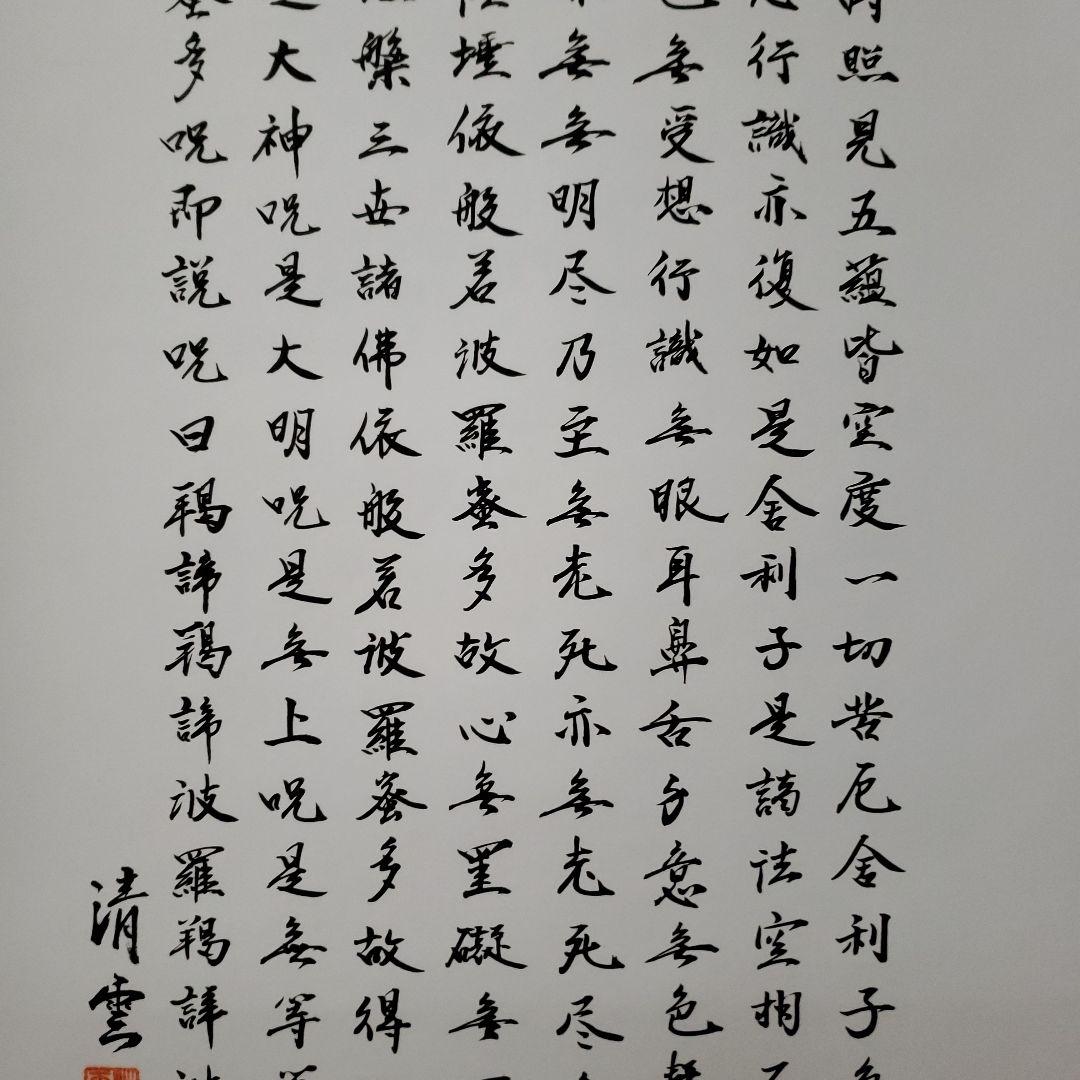 時照見五蘊皆空度一切苦厄舍利子色
行識亦復如是舍利子是諸法空相不
色無受想行識無眼耳鼻舌身意無色聲
無無明尽乃至無老死亦無老死尽
埵依般若波羅蜜多故心無罣礙無
槃三世諸佛依般若波羅蜜多故得
是大神呪是大明呪是無上呪是無等等
蜜多呪即説呪曰羯諦羯諦波羅羯諦波
清雲